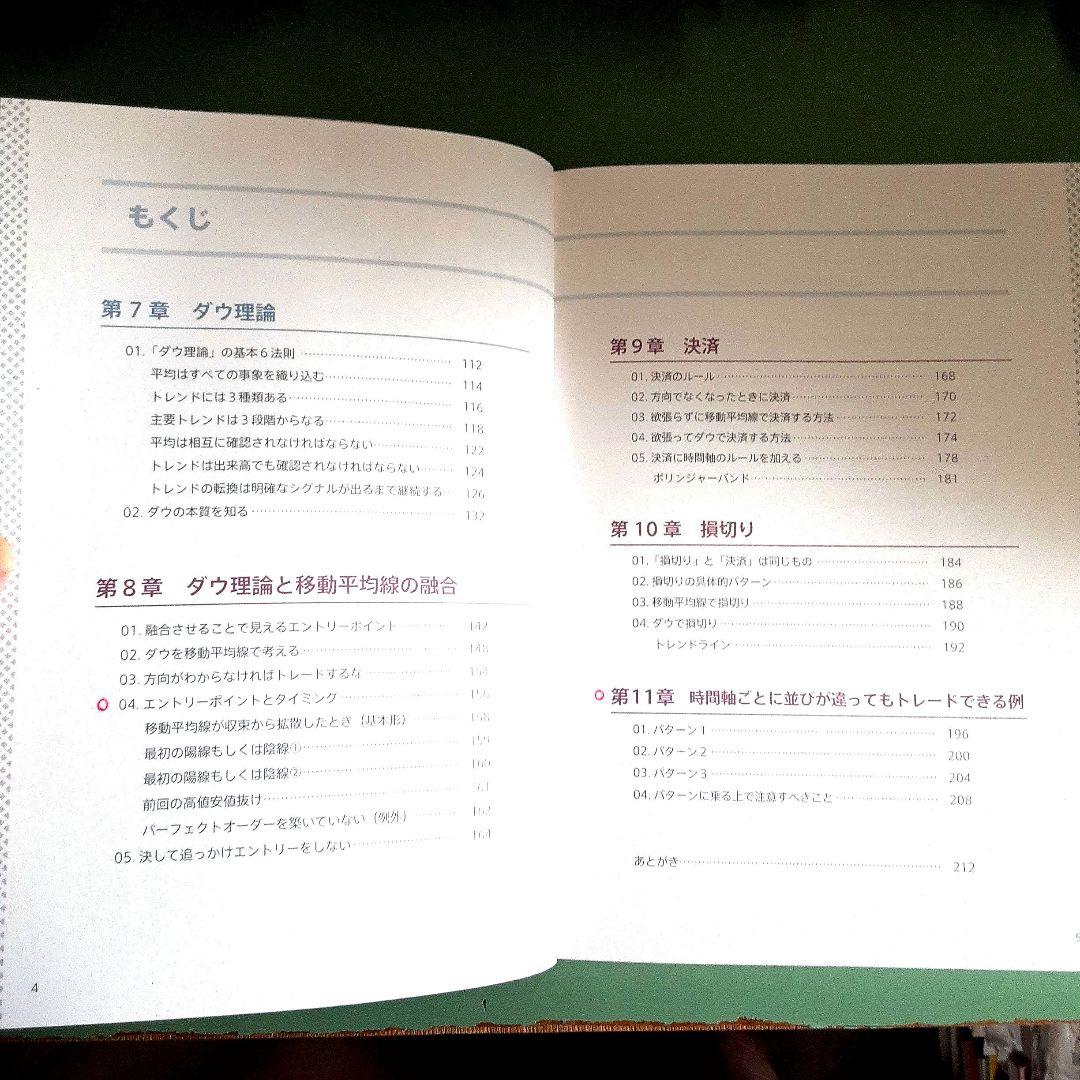 もくじ
第7章 ダウ理論
01.「ダウ理論」の基本6法則 112
平均はすべての事象を織り込む 114
トレンドには3種類ある 116
主要トレンドは3段階からなる 118
平均は相互に確認されなければならない 122
トレンドは出来高でも確認されなければならない 124
トレンドの転換は明確なシグナルが出るまで継続する 126
02. ダウの本質を知る 132
第8章 ダウ理論と移動平均線の融合
01. 融合させることで見えるエントリーポイント 142
02. ダウを移動平均線で考える 148
03. 方向がわからなければトレードするな 154
04. エントリーポイントとタイミング 156
移動平均線が収束から拡散したとき(基本形) 158
最初の陽線もしくは陰線① 159
最初の陽線もしくは陰線② 160
前回の高値安値抜け 161
パーフェクトオーダーを築いていない(例外) 162
05. 決して追っかけエントリーをしない 164
4
第9章 決済
01. 決済のルール 168
02. 方向でなくなったときに決済 170
03. 欲張らずに移動平均線で決済する方法 172
04. 欲張ってダウで決済する方法 174
05. 決済に時間軸のルールを加える 178
ボリンジャーバンド 181
第10章 損切り
01.「損切り」と「決済」は同じもの 184
02. 損切りの具体的パターン 186
03. 移動平均線で損切り 188
04. ダウで損切り 190
トレンドライン 192
第11章 時間軸ごとに並びが違ってもトレードできる例
01. パターン1 196
02. パターン2 200
03. パターン3 204
04. パターンに乗る上で注意すべきこと 208
あとがき 212